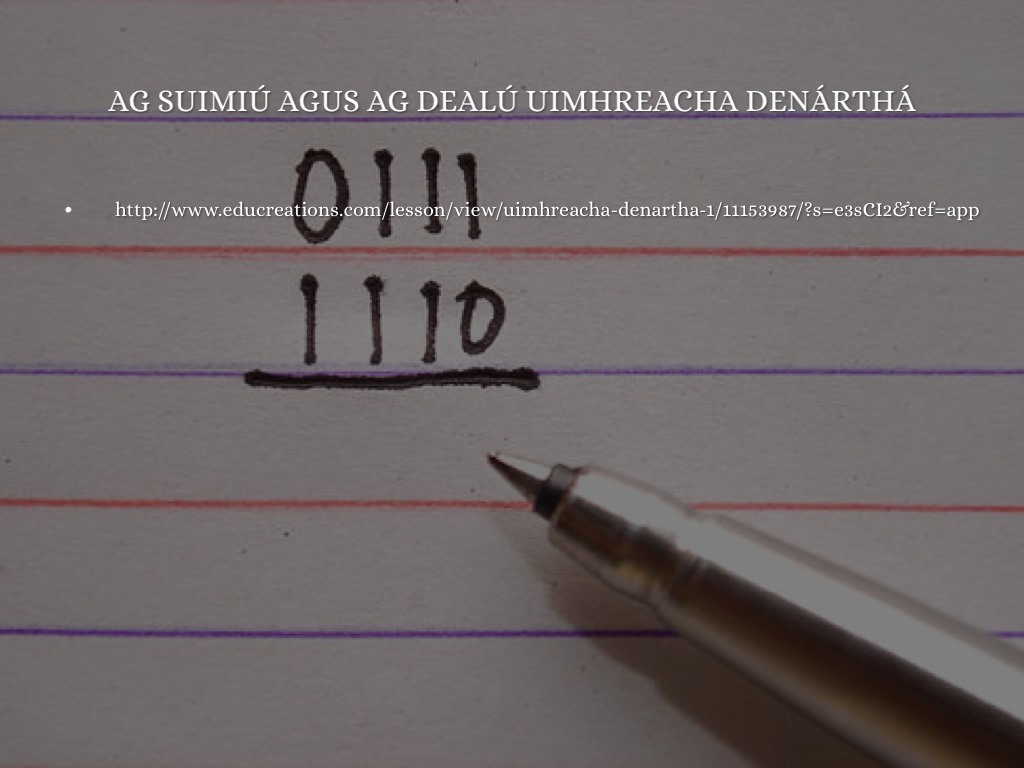 AG SUIMIÚ AGUS AG DEALÚ UIMHREACHA DENÁRTHÁ
0111
• http://www.educreations.com/lesson/view/uimhreacha-denartha-1/11153987/?s=e3sCI2&ref=app
1110